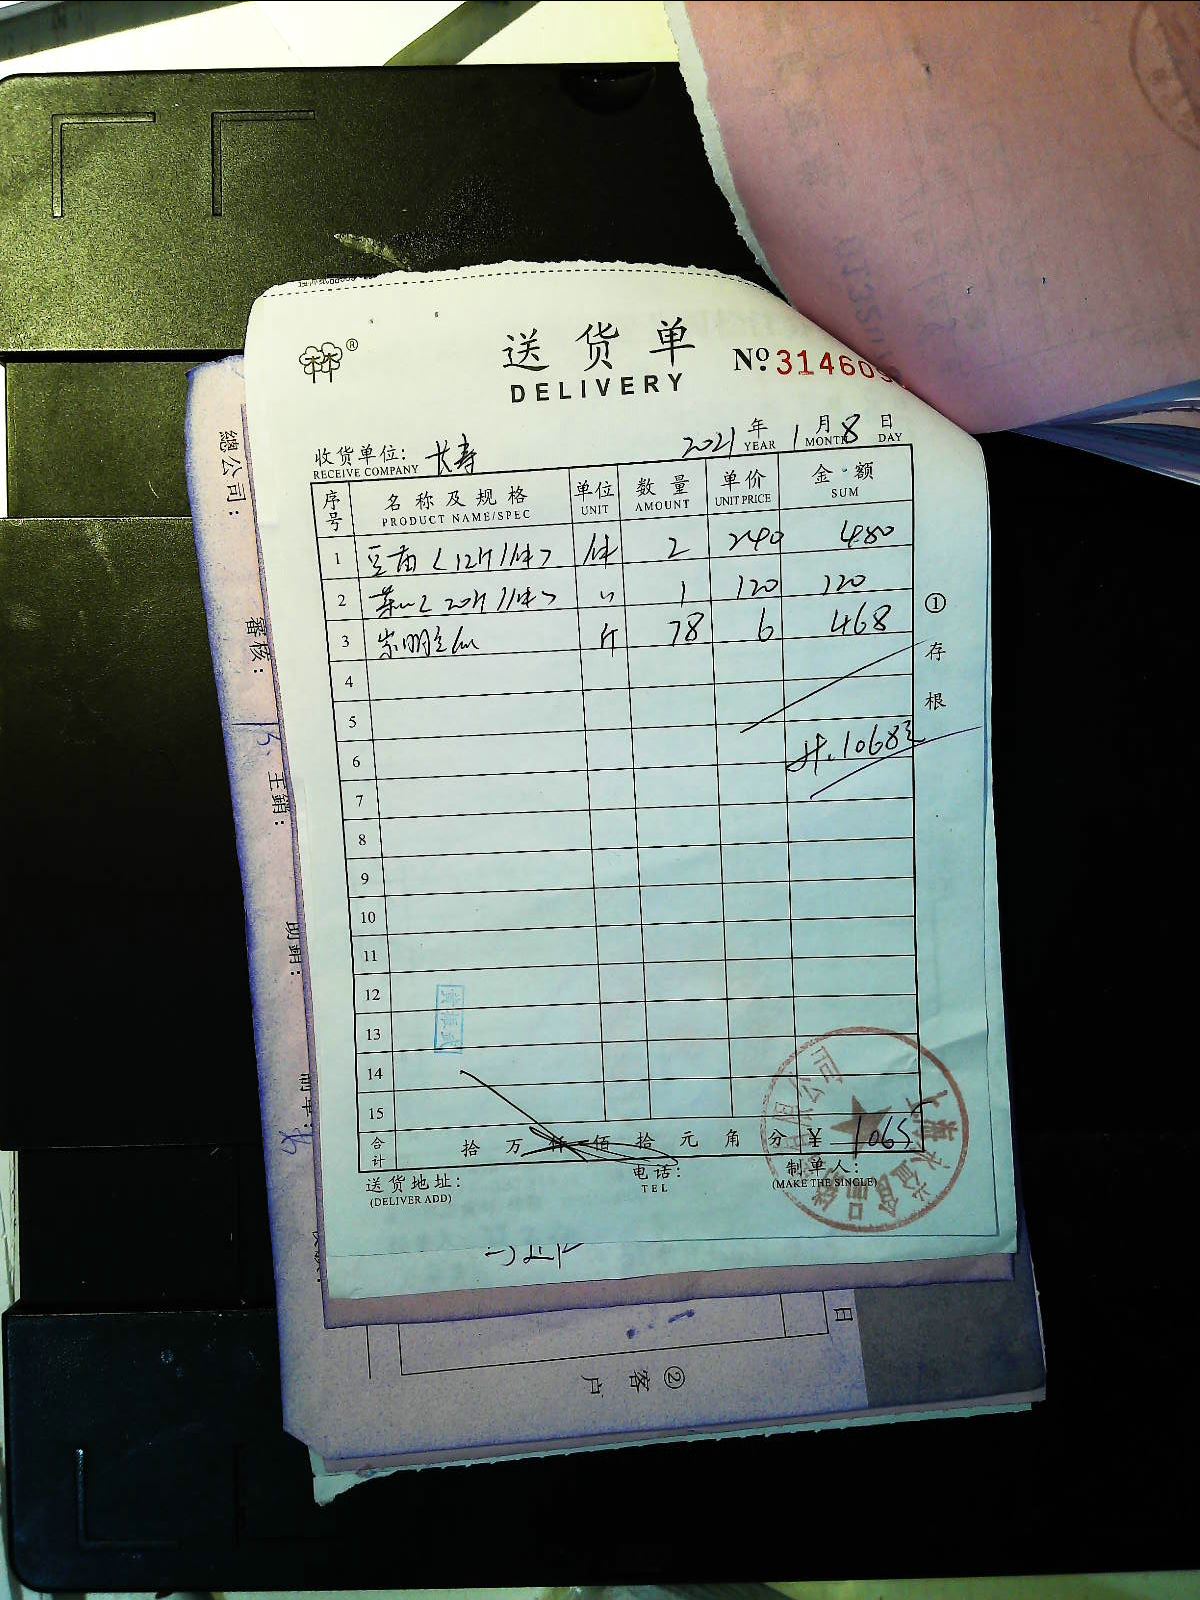 送货单
DELIVERY
№ 314605
收货单位: 长寿
RECEIVE COMPANY
2021 年 1 月 8 日
YEAR MONTH DAY
序号 名称及规格 单位 数量 单价 金额
PRODUCT NAME/SPEC UNIT AMOUNT UNIT PRICE SUM
1 豆苗 (12斤/件) 件 2 240 480
2 (20斤/件) 〃 1 120 120
3 崇明 斤 78 6 468
4
5
6 共.1068元
7
8
9
10
11
12
13
14
15
合计 拾 万 仟 佰 拾 元 角 分 ¥ 1068
送货地址: 电话: 制单人:
(DELIVER ADD) TEL (MAKE THE SINGLE)
① 存根
總公司:
審核:
主銷:
助銷:
制单:
日
② 客户